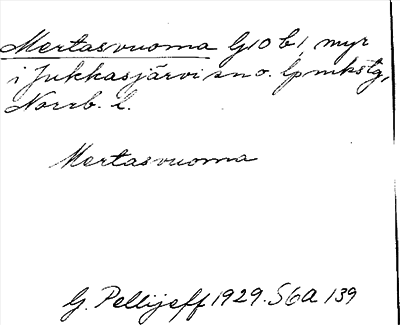 Mertasvuoma G10 b1, myr
i Jukkasjärvi sn o. lpmkstg,
Norrb. l.
Mertasvuoma
G. Pellijeff 1929. S6A 139